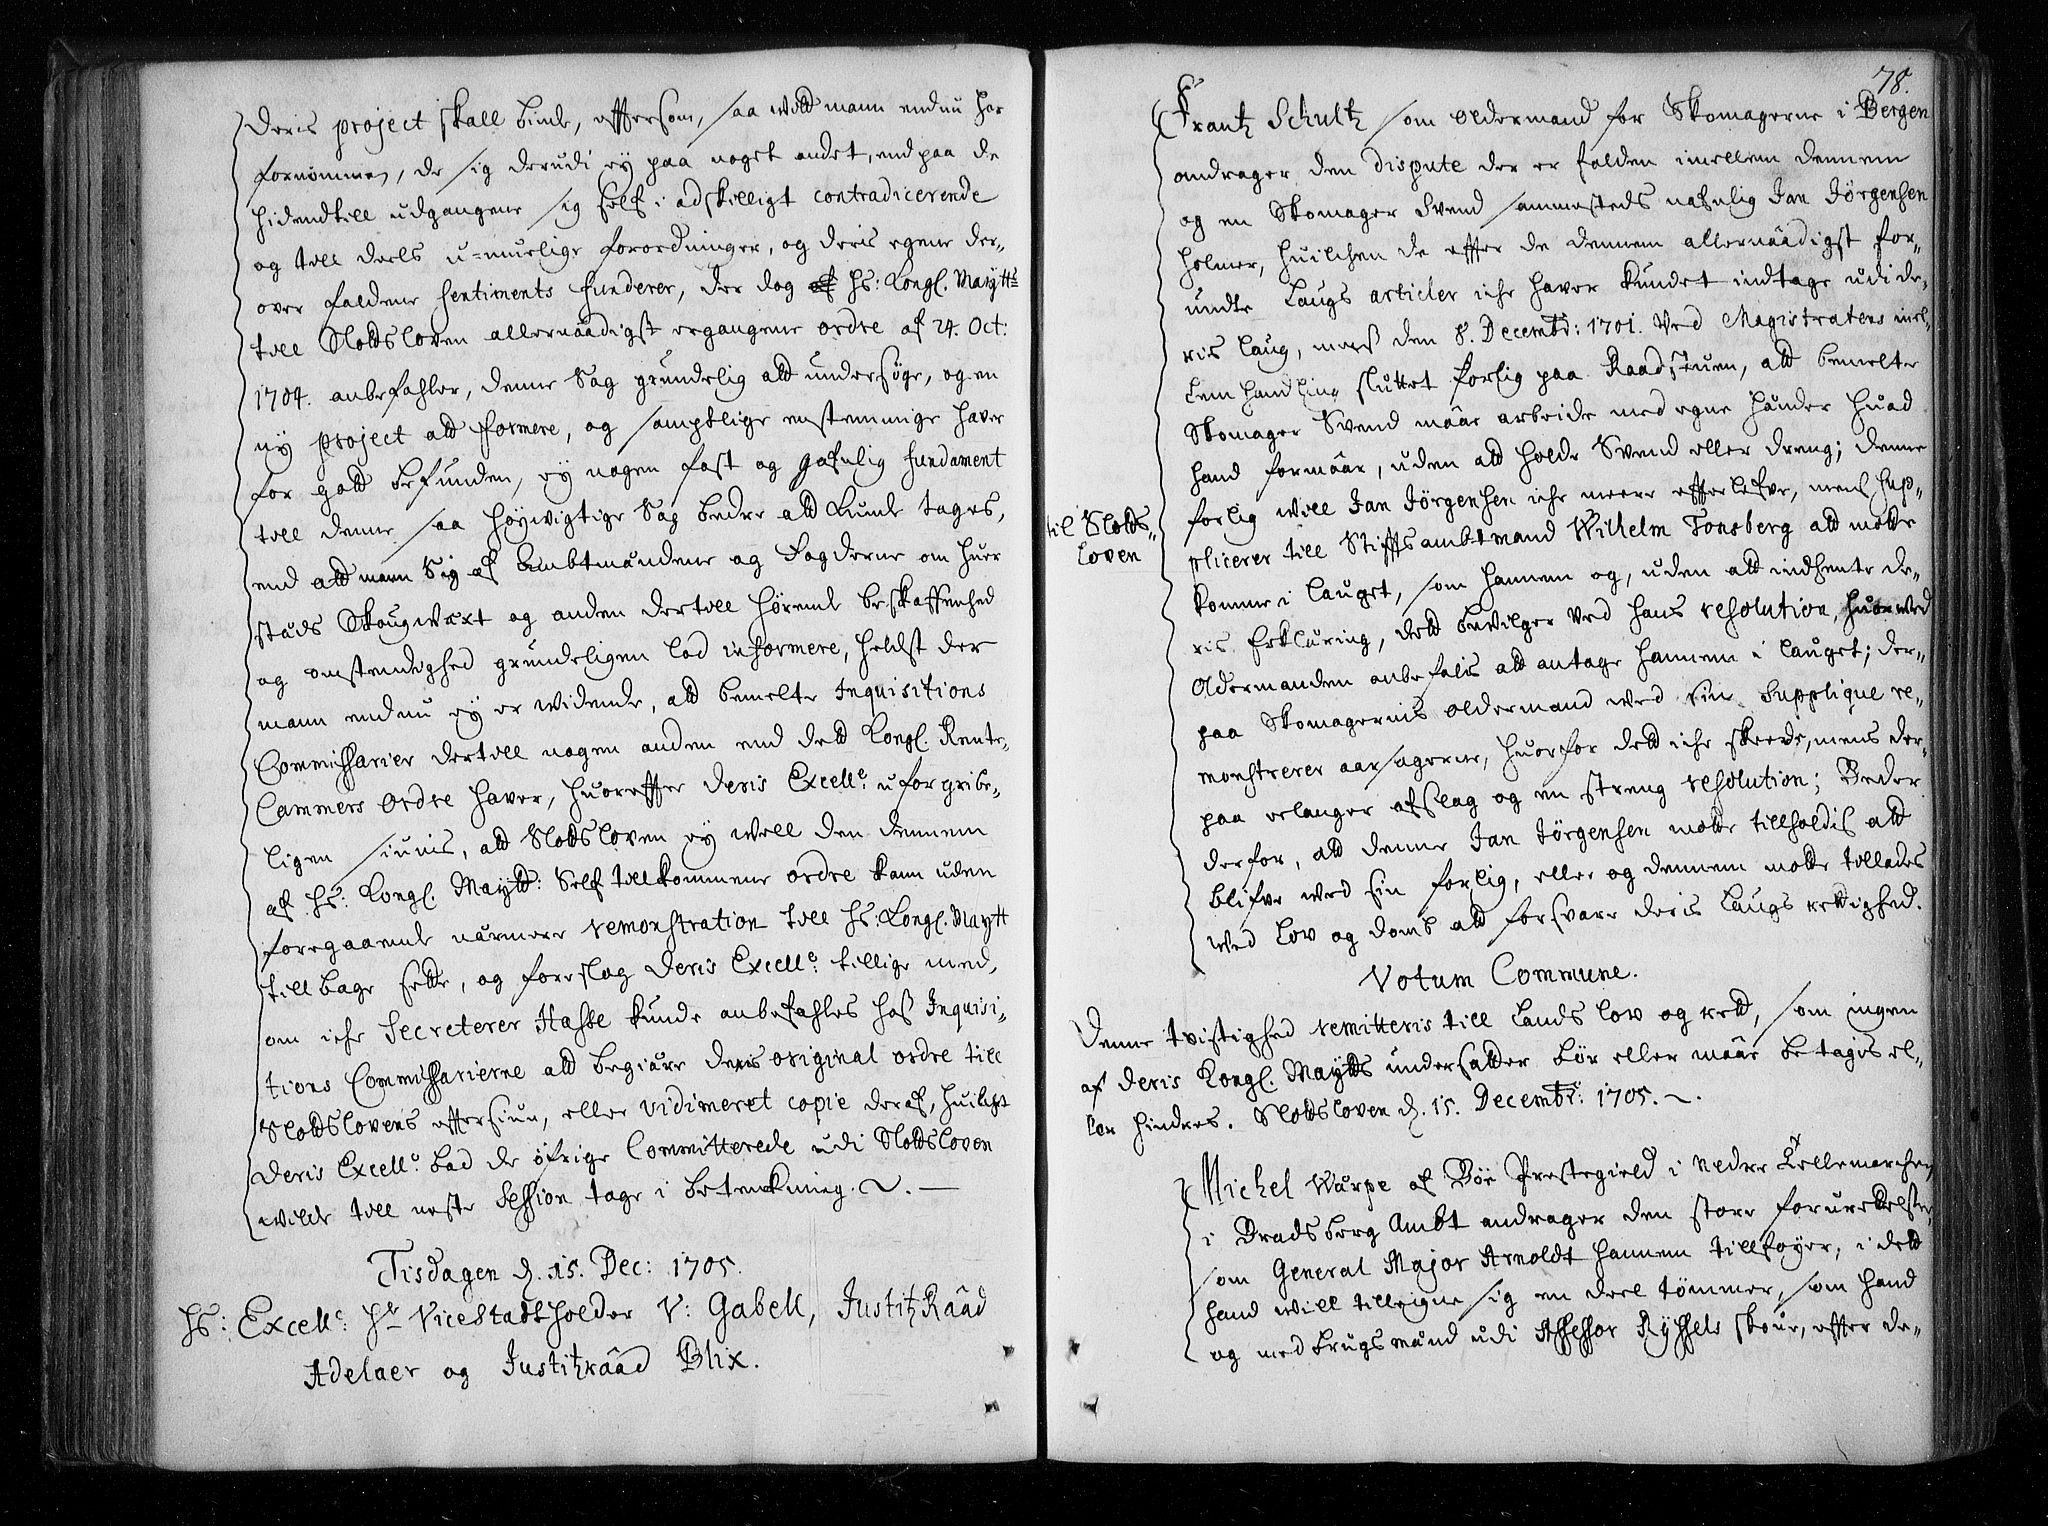 deris project skall binde, effersom, saa vidt mann endnu har
fornømmen, de sig derudi ey paa noget andet, end paa de
hidendtill udgangene sig self i adskilligt contradicerende
og till deels u-muelige forordninger, og deris egene der-
over faldene sentiments funderer, der dog af hs: Kongl. Maytts
till Slotdsloven allernaadigst ergangene ordre af 24. Oct:
1704. anbefahler, denne Sag grundelig att undersøge, og en
ny project att formere, og samptlige enstemmige haver
for gott befunden, ey nogen fast og gafnlig fundament
till denne saa høywigtige Sag bedre att kunde tages,
end att mann Sig af Ambtmændene og Fogderne om huer
stæds Skougwæxt og anden dertill hørende beskaffenhed
og omstendighed grundeligen lod informere, heldst der
mann endnu ey er widende, att bemelte Inquisitions
Commissarier dertill nogen anden end dett Kongl. Rente-
Cammers ordre haver, huoreffter deris Excellce uforgribe-
ligen siunis, att Slotdsloven ey well den dennem
af hs: Kongl. Maytt: Self tillkommene ordre kann uden
foregaaende nærmere remonstration till hs: Kongl. Maytt
tillbage sette, og foreslog deris Excellce tillige med,
om iche Secreterer Hasse kunde anbefahles hos Inquisi-
tions Commissarierne att begiære deris original ordre till
Slotdslovens effersiun, eller vidimeret copie deraf, huilchet
deris Excellce bad de øfrige Committerede udi Slotdsloven
wilde till neste Session tage i betenckning.
Tisdagen d. 15. Dec: 1705.
hs: Excellce: Hr Vicestadtholder V: Gabell, Justitz Raad
Adelaer og Justitzraad Blix.
78.
Frantz Schultz som oldermand for Skomagerne i Bergen
andrager den dispute der er falden imellem dennem
og en Skomager Svend sammesteds nafnlig Jan Jørgensen
holmer, huilchen de effter de dennem allernaadigst for-
undte Laugs articler iche haver kundet indtage udi de-
ris laug, mens den 8. Decembr: 1701. Ved Magistratens mel-
lem handling sluttet forlig paa Raadstuen, att bemelte
Skomager Svend maae arbeide med egne hænder huad
hand formaae, uden att holde Svend eller dreng; denne
forlig will Jan Jørgensen iche meere effterlefve, mens sup-
til Slotds-
loven
plicerer till Stiftsambtmand Wilhelm Tonsberg att motte
komme i lauget, som hannem og, uden att indhente de-
ris Erklæring, dett bevilger ved hans resolution, huorved
Oldermanden anbefalis att antage hannem i lauget; der-
paa Skomagernis oldermand wed sin Supplique re-
monstrerer aarsagerne, huorfor dett iche skeede, mens der-
paa erlanger afslag og en streng resolution; Beder
derfor, att denne Jan Jørgensen motte tillholdis att
blifve wed sin forlig, eller og dennem motte tillades
wed Lov og domb att forsvare deris Laugs rettighed.
Votum Commune.
Denne tvistighed remitteris till Lands lov og rett, som ingen
af deris Kongl. Maytts undersatter bør eller maae betagis el-
ler hindres. Slotdsloven d. 15. Decembr: 1705.
Michel Warpe af Bøe Prestegield i nedre Tellemarchen
i Bradsberg Ambt andrager den store forurettelse
som General Major Arnoldt hannem tillføyer, i dett
hand will tilleigne sig en deel tømmer, som hand
og med brugsmænd udi Assessor Ryssels skoue, effter de-